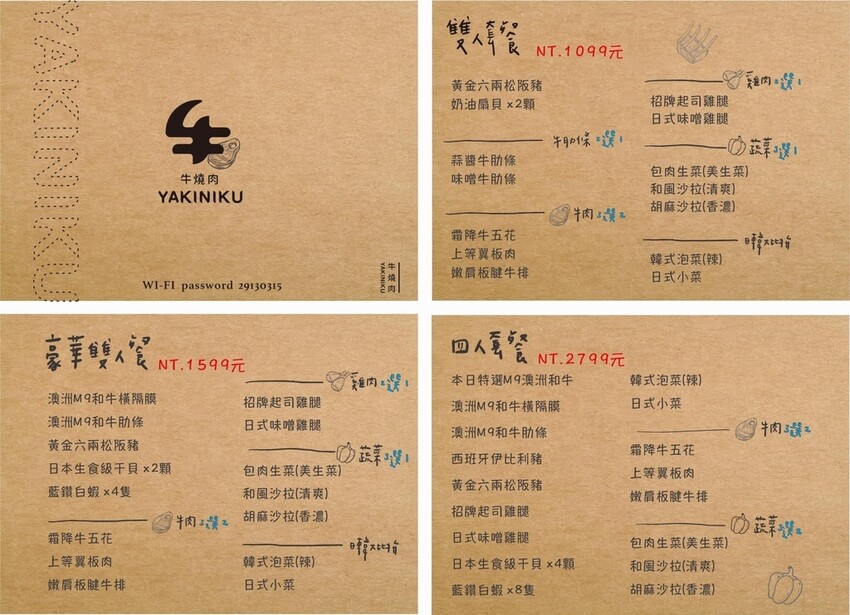 YAKINIKU
牛
牛燒肉
YAKINIKU
WI-FI password 29130315
牛燒肉
YAKINIKU
雙人套餐 NT.1099元
黃金六兩松阪豬
奶油扇貝 x2顆
牛肋條2選1
蒜醬牛肋條
味噌牛肋條
牛肉3選2
霜降牛五花
上等翼板肉
嫩肩板腱牛排
雞肉2選1
招牌起司雞腿
日式味噌雞腿
蔬菜3選1
包肉生菜(美生菜)
和風沙拉(清爽)
胡麻沙拉(香濃)
日韓大比拚
韓式泡菜(辣)
日式小菜
豪華雙人餐 NT.1599元
澳洲M9和牛橫隔膜
澳洲M9和牛肋條
黃金六兩松阪豬
日本生食級干貝 x2顆
藍鑽白蝦 x4隻
牛肉3選2
霜降牛五花
上等翼板肉
嫩肩板腱牛排
雞肉2選1
招牌起司雞腿
日式味噌雞腿
蔬菜3選1
包肉生菜(美生菜)
和風沙拉(清爽)
胡麻沙拉(香濃)
日韓大比拚
韓式泡菜(辣)
日式小菜
四人套餐 NT.2799元
本日特選M9澳洲和牛
澳洲M9和牛橫隔膜
澳洲M9和牛肋條
西班牙伊比利豬
黃金六兩松阪豬
招牌起司雞腿
日式味噌雞腿
日本生食級干貝 x4顆
藍鑽白蝦 x8隻
韓式泡菜(辣)
日式小菜
牛肉3選2
霜降牛五花
上等翼板肉
嫩肩板腱牛排
蔬菜3選2
包肉生菜(美生菜)
和風沙拉(清爽)
胡麻沙拉(香濃)